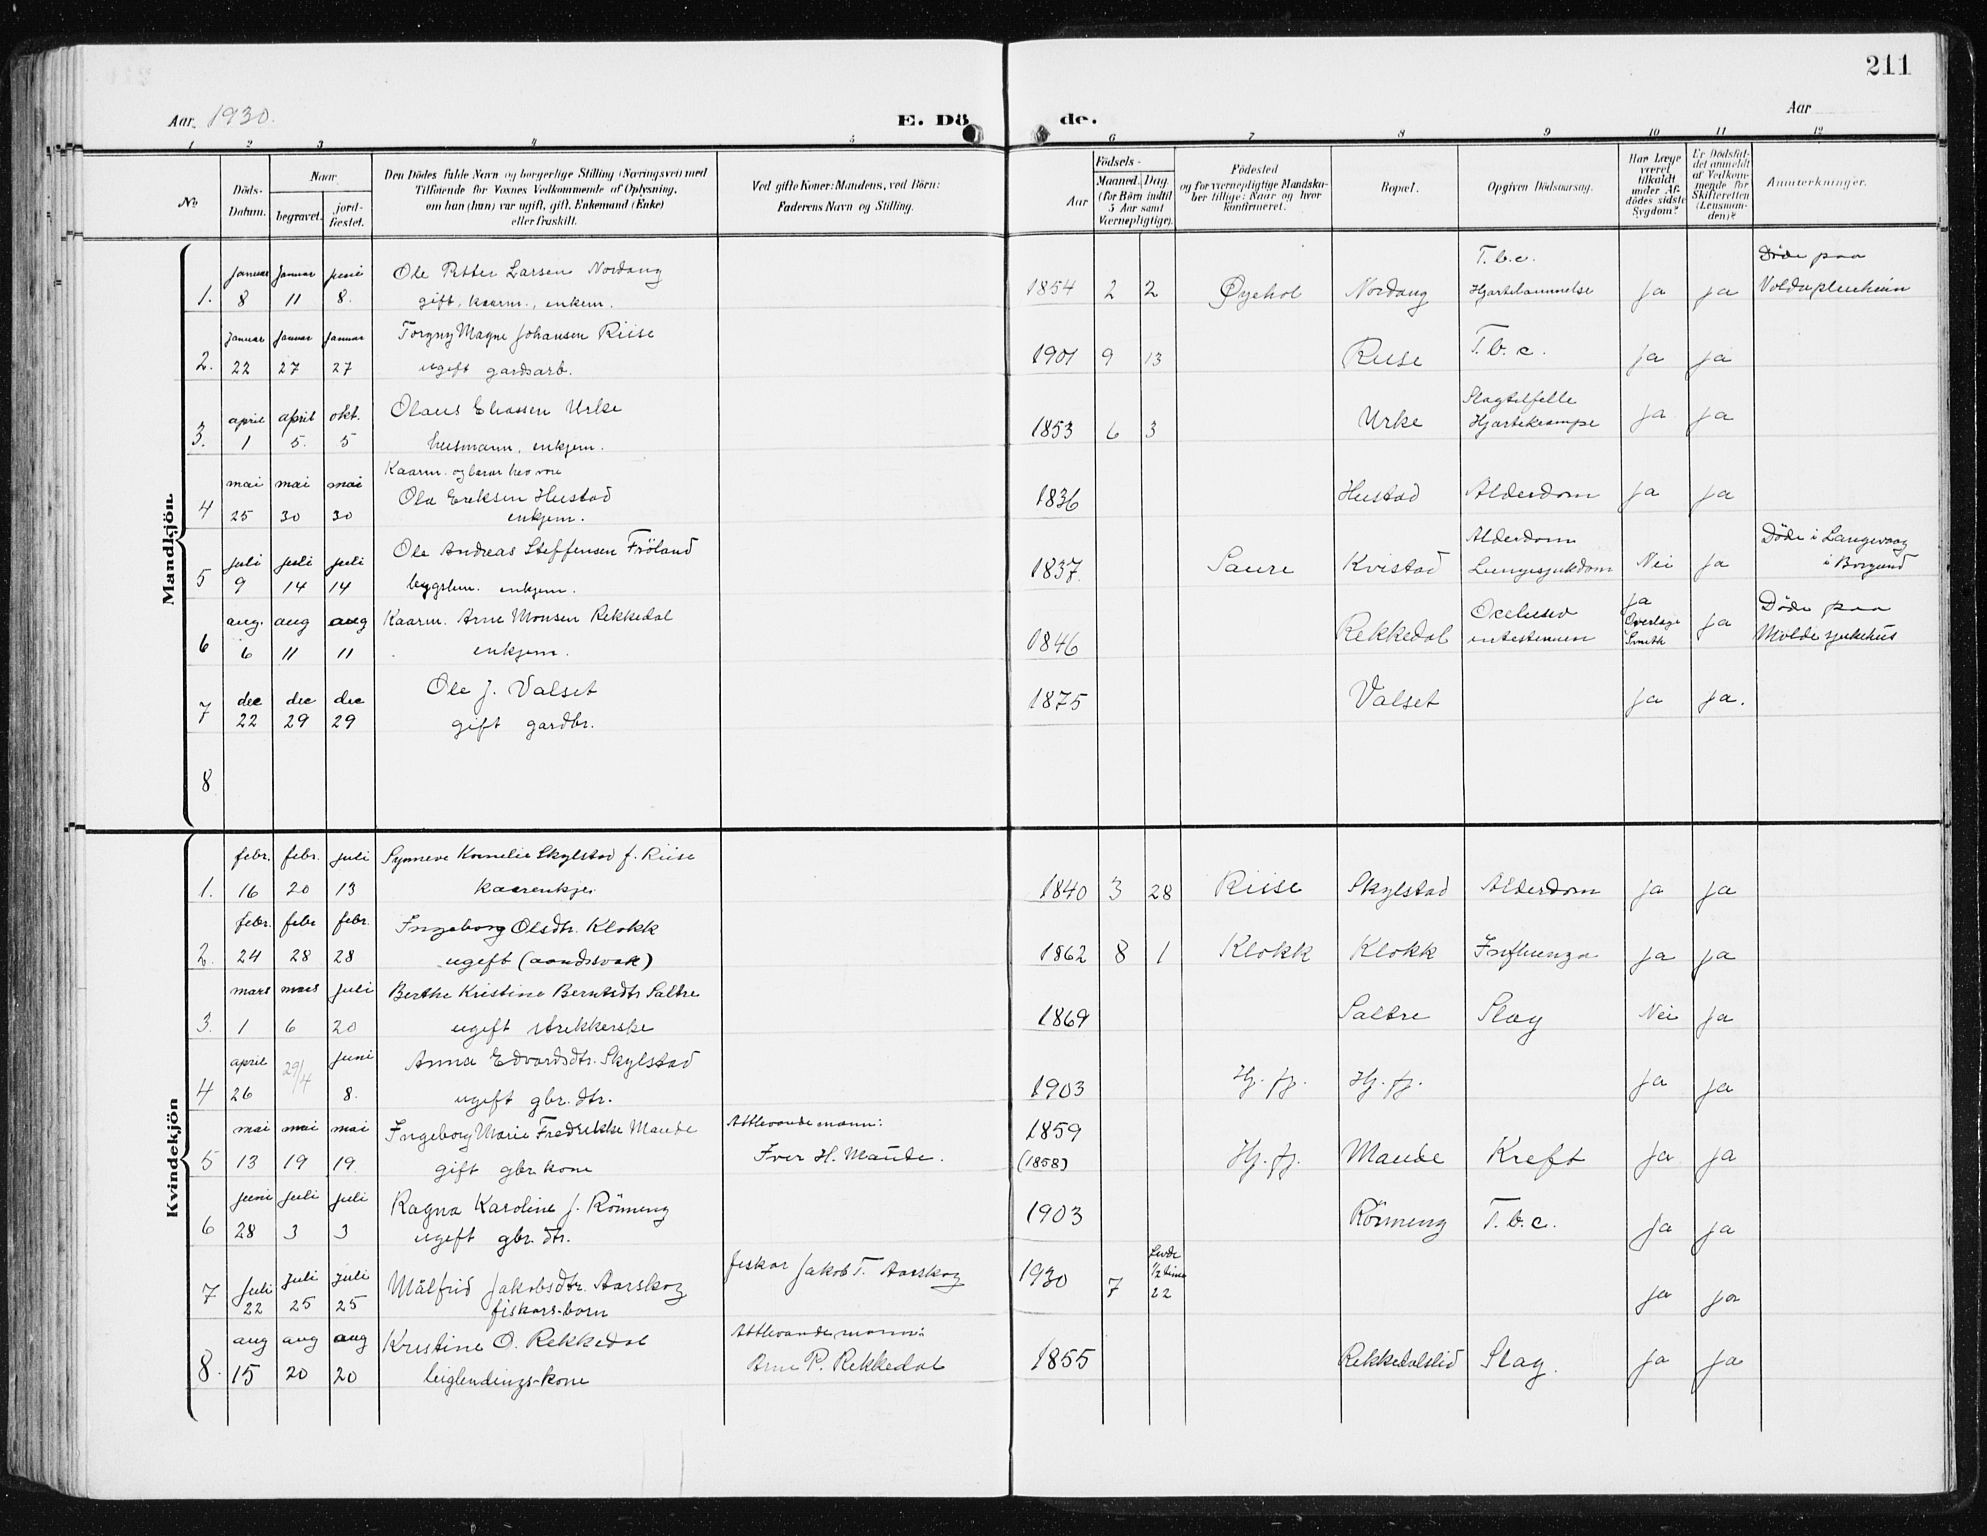 211
Aar 1930.
E. Dö de.
Aar
1 2 3 4 5 6 7 8 9 10 11 12
No
Döds-Datum.
Naar
begravet.
jord-fæstet.
Den Dödes fulde Navn og borgerlige Stilling (Næringsvei) med
Tilföiende for Voxnes Vedkommende af Oplysning,
om han (hun) var ugift, gift, Enkemand (Enke)
eller fraskilt.
Ved gifte Koner: Mandens, ved Börn:
Faderens Navn og Stilling.
Födsels-
Aar
Maaned. Dag
(for Börn indtil
5 Aar samt
Værnepligtige).
Födested
og for værnepligtige Mandska-
ber tillige: Naar og hvor
konfirmeret.
Bopæl.
Opgiven Dödsaarsag.
Har Læge
været
tilkaldt
under Af-
dödes sidste
Sygdom?
Er Dödsfal-
det anmeldt
af Vedkom-
mende for
Skifteretten
(Lensman-
den)?
Anmærkninger.
Mandkjön
1. januar 8 januar 11 juni 8. Ole Petter Larsen Nordang
gift, kaarm., enkem.
1854 2 2 Øyehol Nordang T.b.c.
Hjartelammelse ja ja Döde paa
Volda pleieheim
2. januar 22 januar 27 januar 27 Torgny Magne Johansen Riise
ugift gardsarb.
1901 9 13 Riise T.b.c. ja ja
3. april 1 april 5. okt. 5 Olaus Eliassen Urke
husmann, enkjem.
1853 6 3 Urke Slagtilfelle
Hjartekrampe ja ja
4 mai 25 mai 30 mai 30 Kaarm. og lærar
Ola Eriksen Hustad
enkjem.
1836 Hustad Alderdom ja ja
5 juli 9 juli 14 juli 14 Ole Andreas Steffensen Fröland
bygslem. enkjem.
1837. Saure Kvistad Alderdom
Lungesjukdom Nei ja Döde i Langevaag
i Borgund
6 aug. 6 aug 11 aug 11 Kaarm. Arne Monsen Rekkedal
enkjem.
1846 Rekkedal ja
Overlæge
Smith ja Döde paa
Molde sjukehus
7 dec 22 dec 29 dec 29 Ole J. Valset
gift gardbr.
1875 Valset ja ja.
8
Kvindekjön
1. febr. 16 febr. 20 juli 13 Synneve Kornelie Skylstad f. Riise
kaarenkje
1840 3 28 Riise Skylstad Alderdom ja ja
2. febr. 24 febr 28 febr. 28 Ingeborg Olsdtr. Klokk
ugift (aandssvak)
1862 8 1 Klokk Klokk Influenza ja ja
3. mars 1 mars 6 juli 20 Berthe Kristine Berntsdtr Saltre
ugift strekkerske
1869 Saltre Slag Nei ja
4 april 26 29/4 juni 8. Anna Edvardsdtr. Skylstad
ugift gbr. dtr.
1903 Hj.fj. Hj.fj. ja ja
5 mai 13 mai 19 mai 19. Ingeborg Marie Fredrikke Maude
gift gbr. kone
Attlevande mann:
Iver H. Maude.
1859
(1858) Hj.fj. Maude Kreft ja ja
6 juni 28 juli 3 juli 3 Ragna Karoline J. Rönneng
ugift gbr. dtr.
1903 Rönneng T.b.c. ja ja
7 juli 22 juli 25 juli 25 Målfrid Jakobsdtr. Aarskog
fiskars-barn
fiskar Jakob T. Aarskog
1930 7 Levde
1/2 time
22 ja ja
8. aug 15 aug 20 aug 20 Kristine O. Rekkedal
leiglendings-kone
Attlevande mann:
Arne P. Rekkedal
1855 Rekkedalslid Slag. ja ja